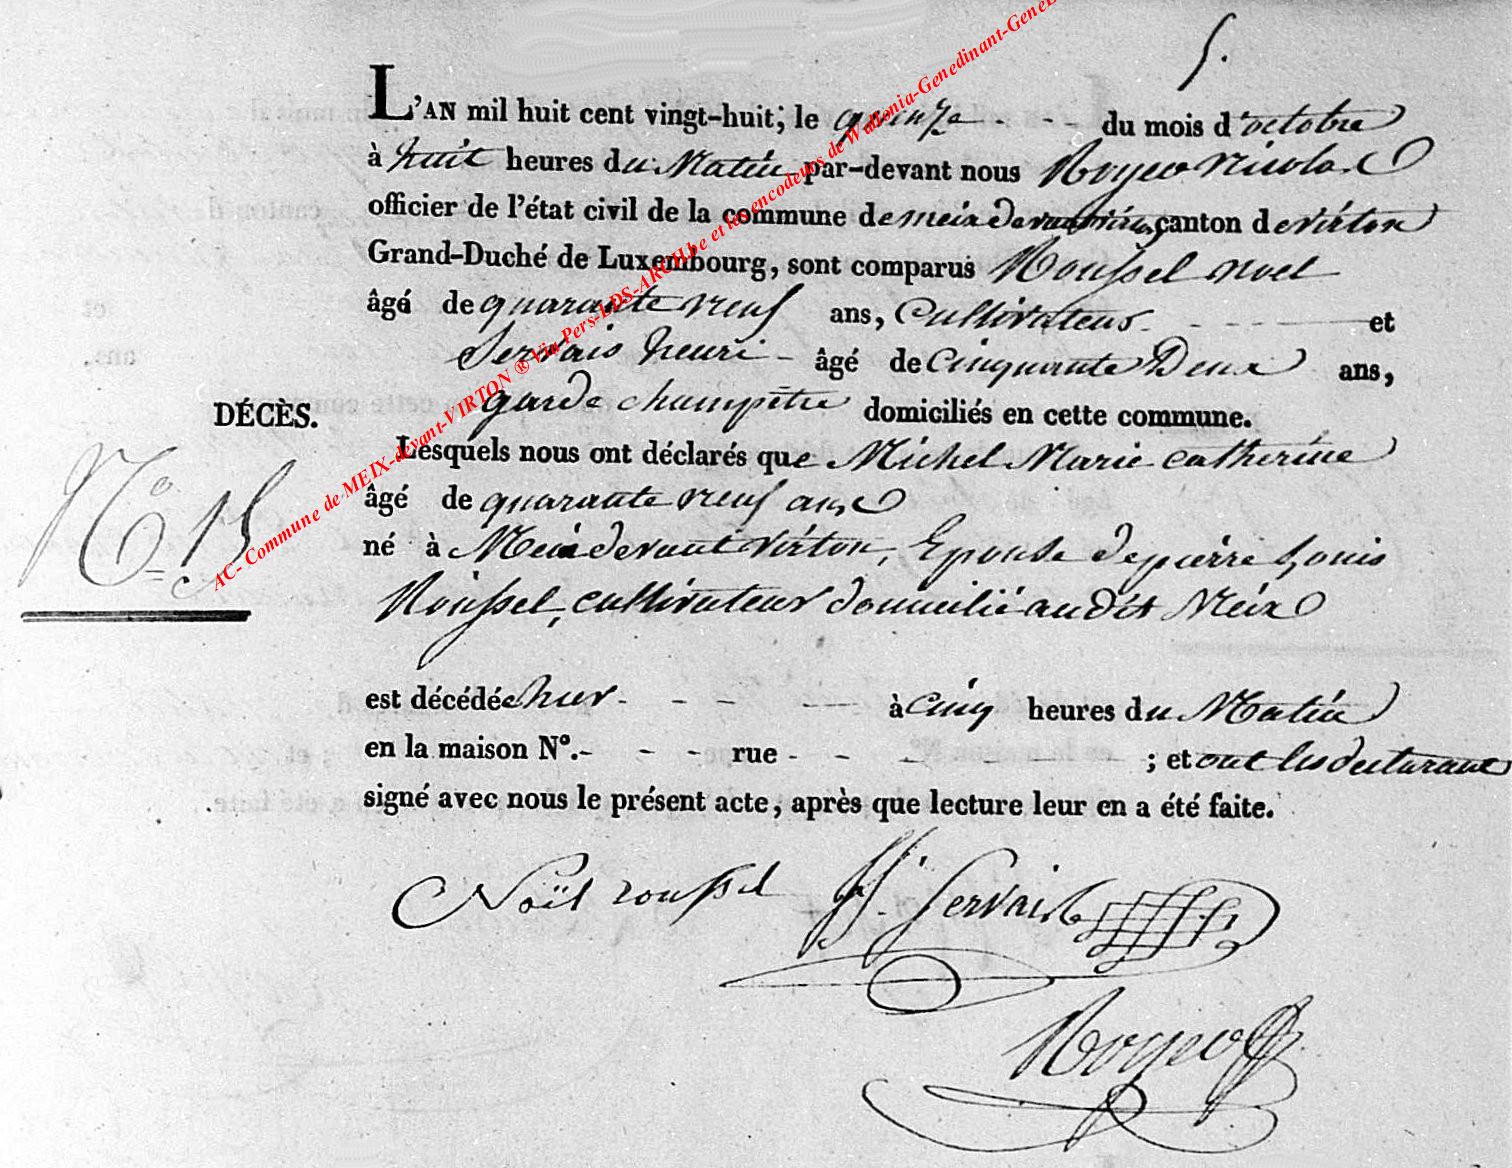 5.
L'AN mil huit cent vingt-huit; le quinze - - - du mois d'octobre
à huit heures du Matin par-devant nous Royer Nicolas
officier de l'état civil de la commune de meix devant virton, canton de virton
Grand-Duché de Luxembourg, sont comparus Roussel noel
âgé de quarante neuf ans, Cultivateur - - - et
Servais henri - âgé de Cinquante Deux ans,
garde champêtre domiciliés en cette commune.
DÉCÈS.
Lesquels nous ont déclarés que Michel Marie catherine
N° 15
âgé de quarante neuf ans
né à Meix devant virton, Epouse de pierre Louis
Roussel, cultivateur domicilié au dit Meix
est décédée hier - - - - à cinq heures du Matin
en la maison N°. - - - rue - - - - - ; et ont les declarant
signé avec nous le présent acte, après que lecture leur en a été faite.
Noël roussel H. Servais
Royer
AC- Commune de MEIX-devant-VIRTON ® Via Pers-LDS-ARCH.be et les encodeurs de Wallonia-Genedinant-GeneB